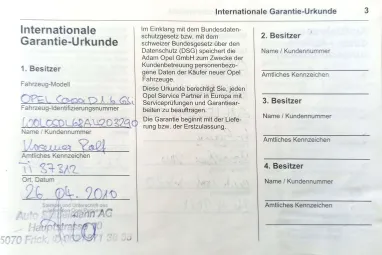 Internationale Garantie-Urkunde 3
Internationale
Garantie-Urkunde
1. Besitzer
Fahrzeug-Modell
OPEL Corsa D 1.6
Fahrzeug-Identifizierungsnummer
Name / Kundennummer
Ralf
Amtliches Kennzeichen
Ort, Datum
26 04. 2010
AG
5070 Frick,
Im Einklang mit dem Bundesdaten-
schutzgesetz bzw. mit dem
schweizer Bundesgesetz über den
Datenschutz (DSG) speichert die
Adam Opel GmbH zum Zwecke der
Kundenbetreuung personenbezo-
gene Daten der Käufer neuer Opel
Fahrzeuge.
Diese Urkunde berechtigt Sie, jeden
Opel Service Partner in Europa mit
Serviceprüfungen und Garantiear-
beiten zu beauftragen.
Die Garantie beginnt mit der Liefe-
rung bzw. der Erstzulassung.
2. Besitzer
Name / Kundennummer
Amtliches Kennzeichen
3. Besitzer
Name / Kundennummer
Amtliches Kennzeichen
4. Besitzer
Name / Kundennummer
Amtliches Kennzeichen